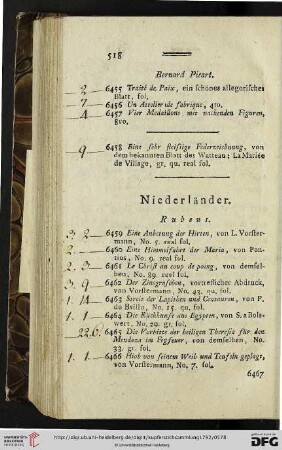 518
Bernard Picart.
2 — 6455 Traité de Paix, ein schönes allegorisches
Blatt, fol.
7 — 6456 Un Attelier de fabrique, 4to.
4 — 6457 Vier Medaillons mit nackenden Figuren,
8vo.
9 — 6458 Eine sehr fleissige Federzeichnung, von
dem bekannten Blatt des Watteau: La Mariée
de Village, gr. qu. real fol.
Niederländer.
Rubens.
3. 2 — 6459 Eine Anbetung der Hirten, von L. Vorster-
mann, No. 5. real fol.
2 — 6460 Eine Himmelfahrt der Maria, von Pon-
tius, No. 9. real fol.
2. 3 — 6461 Le Christ au coup de poing, von demsel-
ben, No. 89. real fol.
3. 9 — 6462 Der Zinsgroschen, vortreflicher Abdruck,
von Vorstermann, No. 43. qu. fol.
1. 14 — 6463 Streit der Lapithen und Centauren, von P.
de Bailliu, No. 25. qu. fol.
1. 1 — 6464 Die Rückkunft aus Egypten, von S. a Bols-
wert, No. 20. gr. fol.
22. 6. 6465 Die Vorbitte der heiligen Theresia für den
Mendoza im Fegfeuer, von demselben, No.
33. gr. fol.
1. 1 — 6466 Hiob von seinem Weib und Teufeln geplagt,
von Vorstermann, No. 7. fol.
6467
UNIVERSITÄTS-
BIBLIOTHEK
HEIDELBERG
http://digi.ub.uni-heidelberg.de/diglit/kupferstichsammlung1792/0578
© Universitätsbibliothek Heidelberg
gefördert durch die
DFG